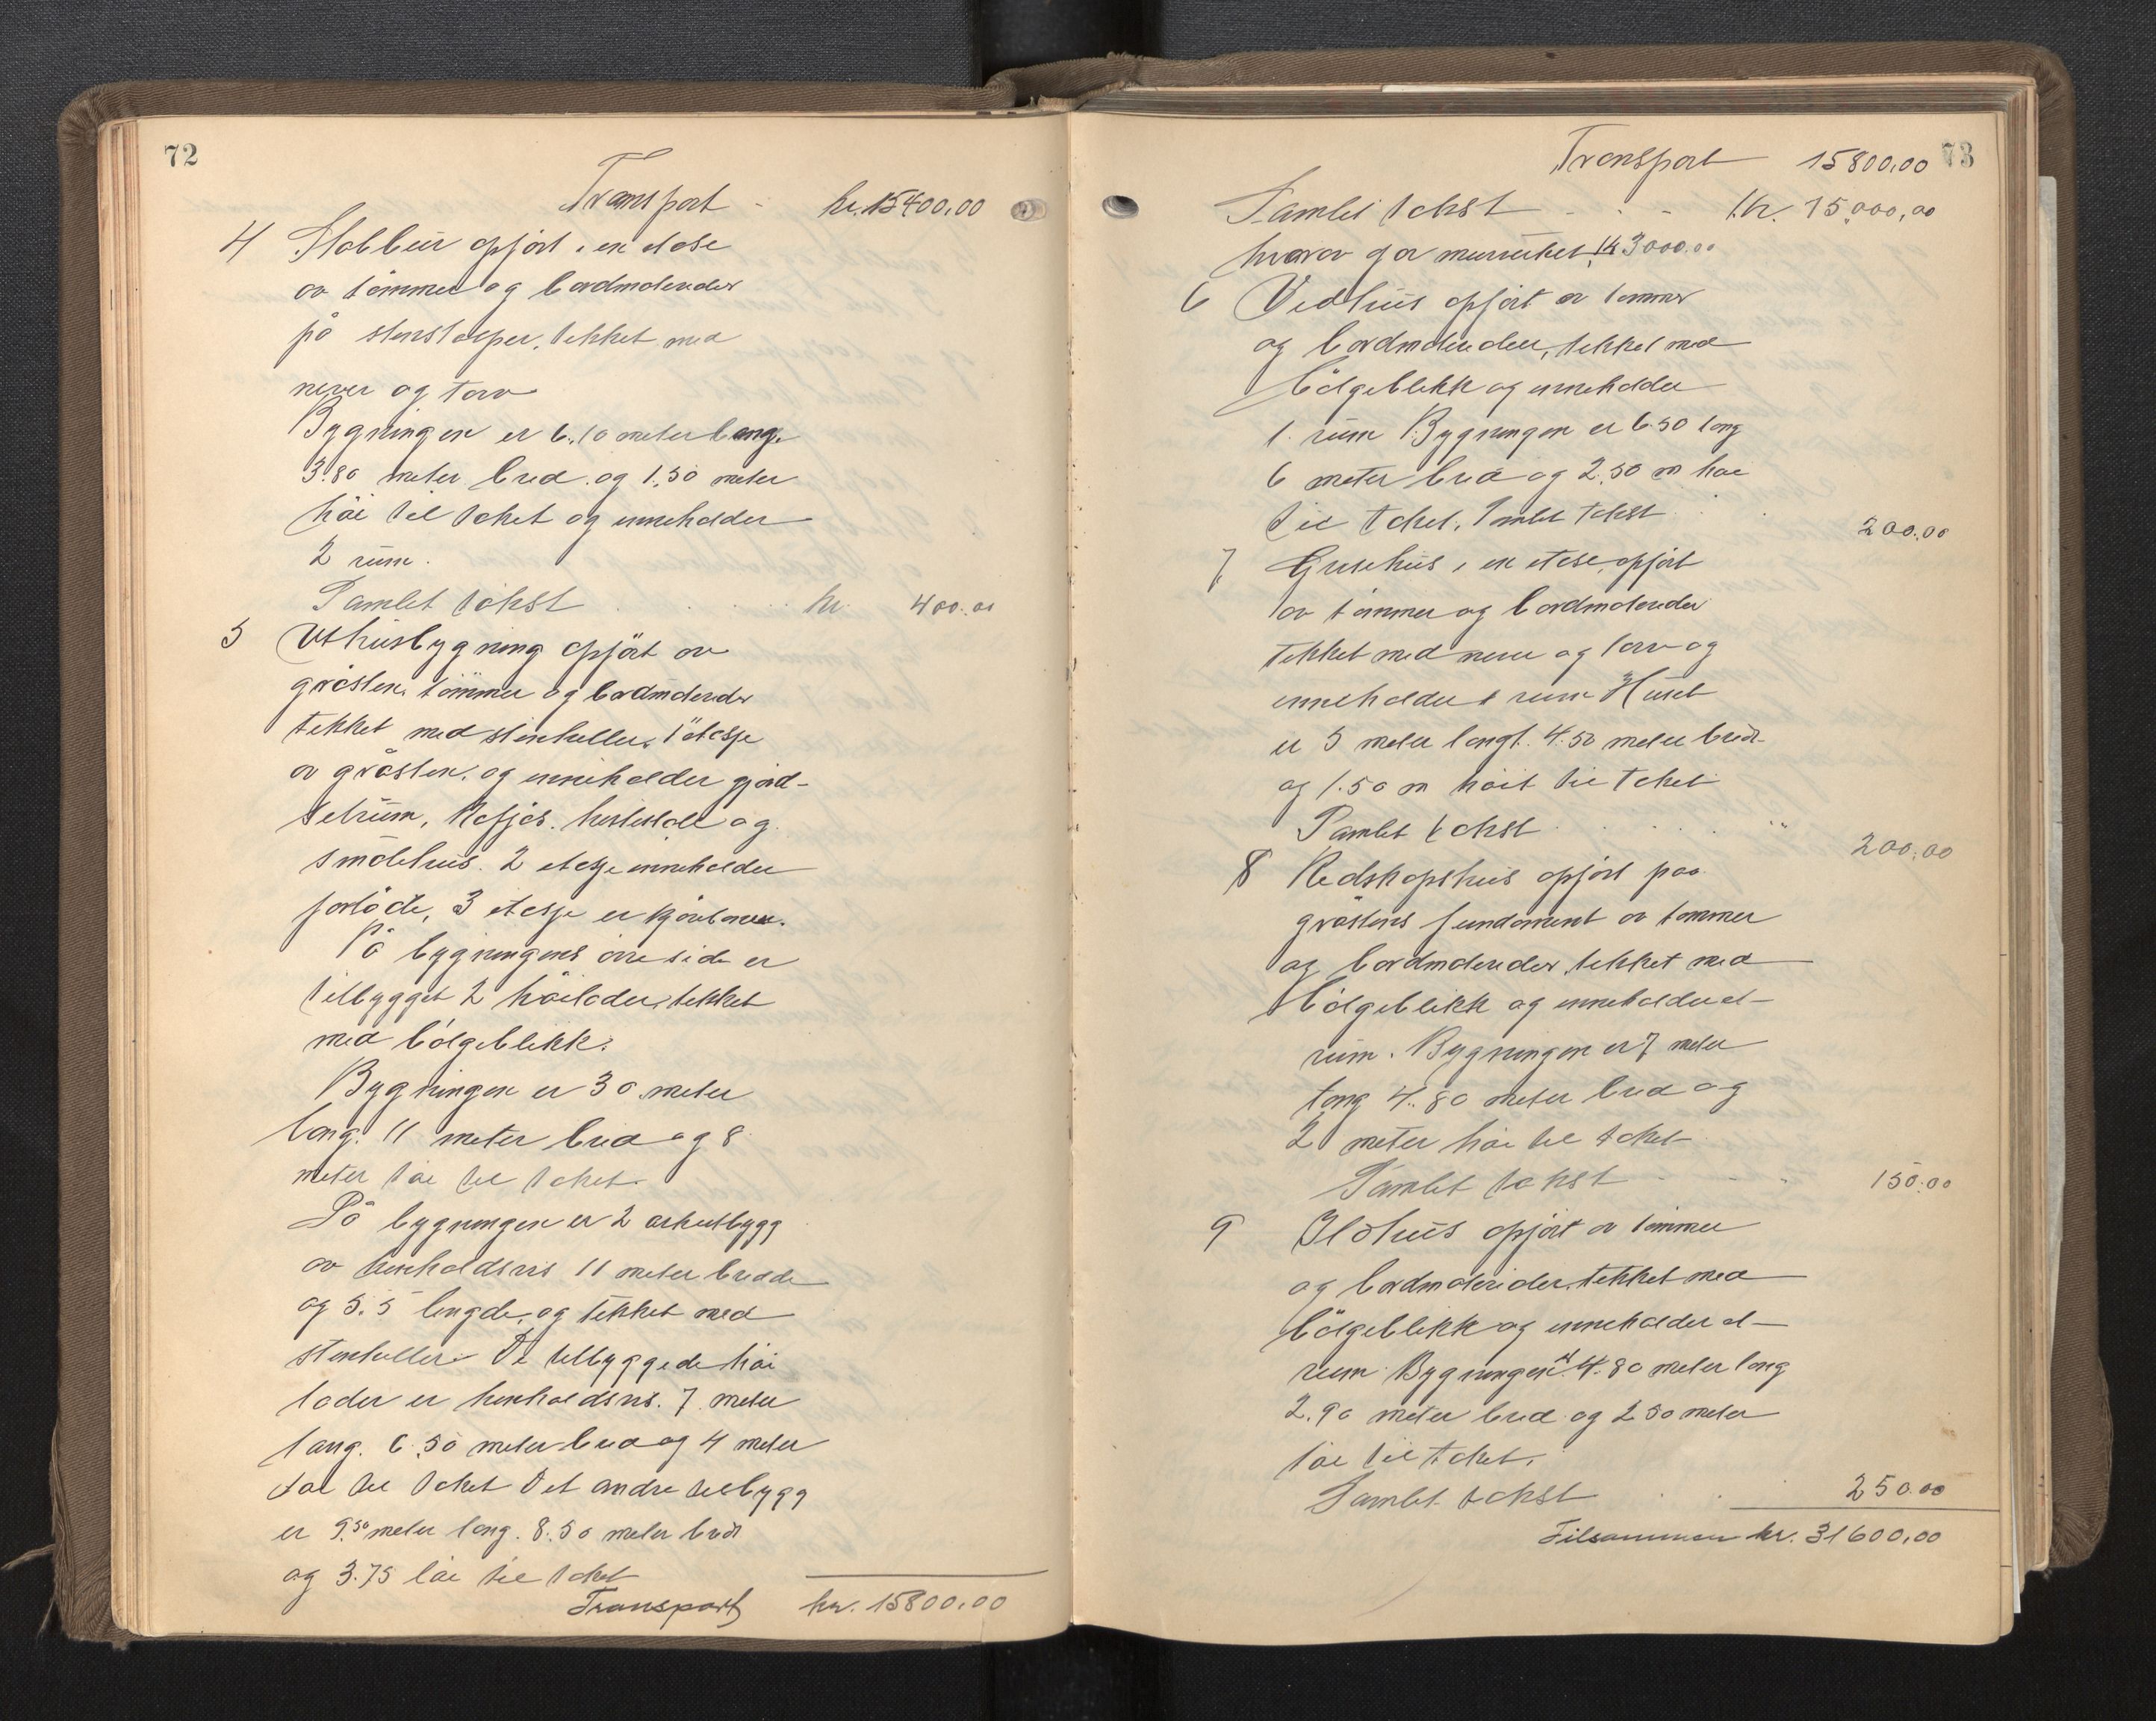 72
Transport - kr. 15400,00
4 Stabbur opført i en etase
av tømmer og bordmaterialer
på stenstolper, tekket med
never og torv
Bygningen er 6,10 meter lang.
3.80 meter bred og 1.50 meter
høi til taket og inneholder
2 rum.
Samlet takst kr. 400.00
5 Uthusbygning opført av
gråsten, tømmer og bordmaterialer
tekket med stenheller. 1 etasje
av gråsten. og inneholder gjød-
selrum, kofjøs. hestestall og
småfehus. 2 etasje inneholder
forløde, 3 etasje er kjørebane.
På bygningens øvre side er
tilbygget 2 høilader, tekket
med bølgeblikk.
Bygningen er 30 meter
lang. 11 meter bred og 8
meter høi til taket.
På bygningen er 2 arkutbygg
av henholdsvis 11 meter bredde
og 5.5 lengde, og tekket med
stenheller. De tilbyggede høi
lader er henholdsvis. 7 meter
lang. 6.50 meter bred og 4 meter
høi til taket Det andre tilbygg
er 9.50 meter lang. 8.50 meter bred
og 3.75 høi til taket
Transport kr. 15800.00
73
Transport 15800,00
Samlet takst - - - kr. 15.000,00
hvorav for murverket kr 3000.00
6 Vedhus opført av tømmer
og bordmaterialer, tekket med
bølgeblikk og inneholder
1. rum Bygningen er 6.50 lang
6 meter bred og 2.50 m høi
til taket. Samlet takst 200.00
7 Grisehus i en etase, opført
av tømmer og bordmaterialer
tekket med never og torv og
inneholder 1 rum Huset
er 5 meter langt. 4.50 meter bredt
og 1.50 m høit til taket
Samlet takst " 200.00
8 Redskapshus opført paa
gråstens fundament av tømmer
og bordmaterialer, tekket med
bølgeblikk og inneholder et
rum. Bygningen er 7 meter
lang 4.80 meter bred og
2 meter høi til taket
Samlet takst - - - 150.00
9 Ildhus opført av tømmer
og bordmaterialer, tekket med
bølgeblikk og inneholder et
rum. Bygningen er 4.80 meter lang
2.90 meter bred og 2 50 meter
høi til taket.
Samlet takst 250.00
Tilsammen kr. 31600,00